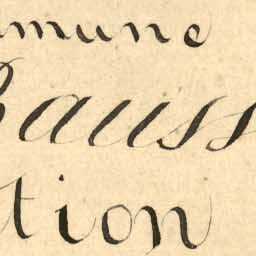 mmune
Bauss
tion